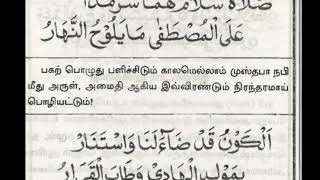 صَلَاةٌ سَلَامٌ هُمَا سَرْمَدًا
عَلَى الْمُصْطَفٰى مَا يَلُوْحُ النَّهَارُ
பகற் பொழுது பளிச்சிடும் காலமெல்லாம் முஸ்தபா நபி
மீது அருள், அமைதி ஆகிய இவ்விரண்டும் நிரந்தரமாய்
பொழியட்டும்!
اَلْكَوْنُ قَدْ ضَاءَ لَنَا وَاسْتَنَارَ
بِمَوْلِدِ الْهَادِيْ وَطَابَ الْقَرَارُ